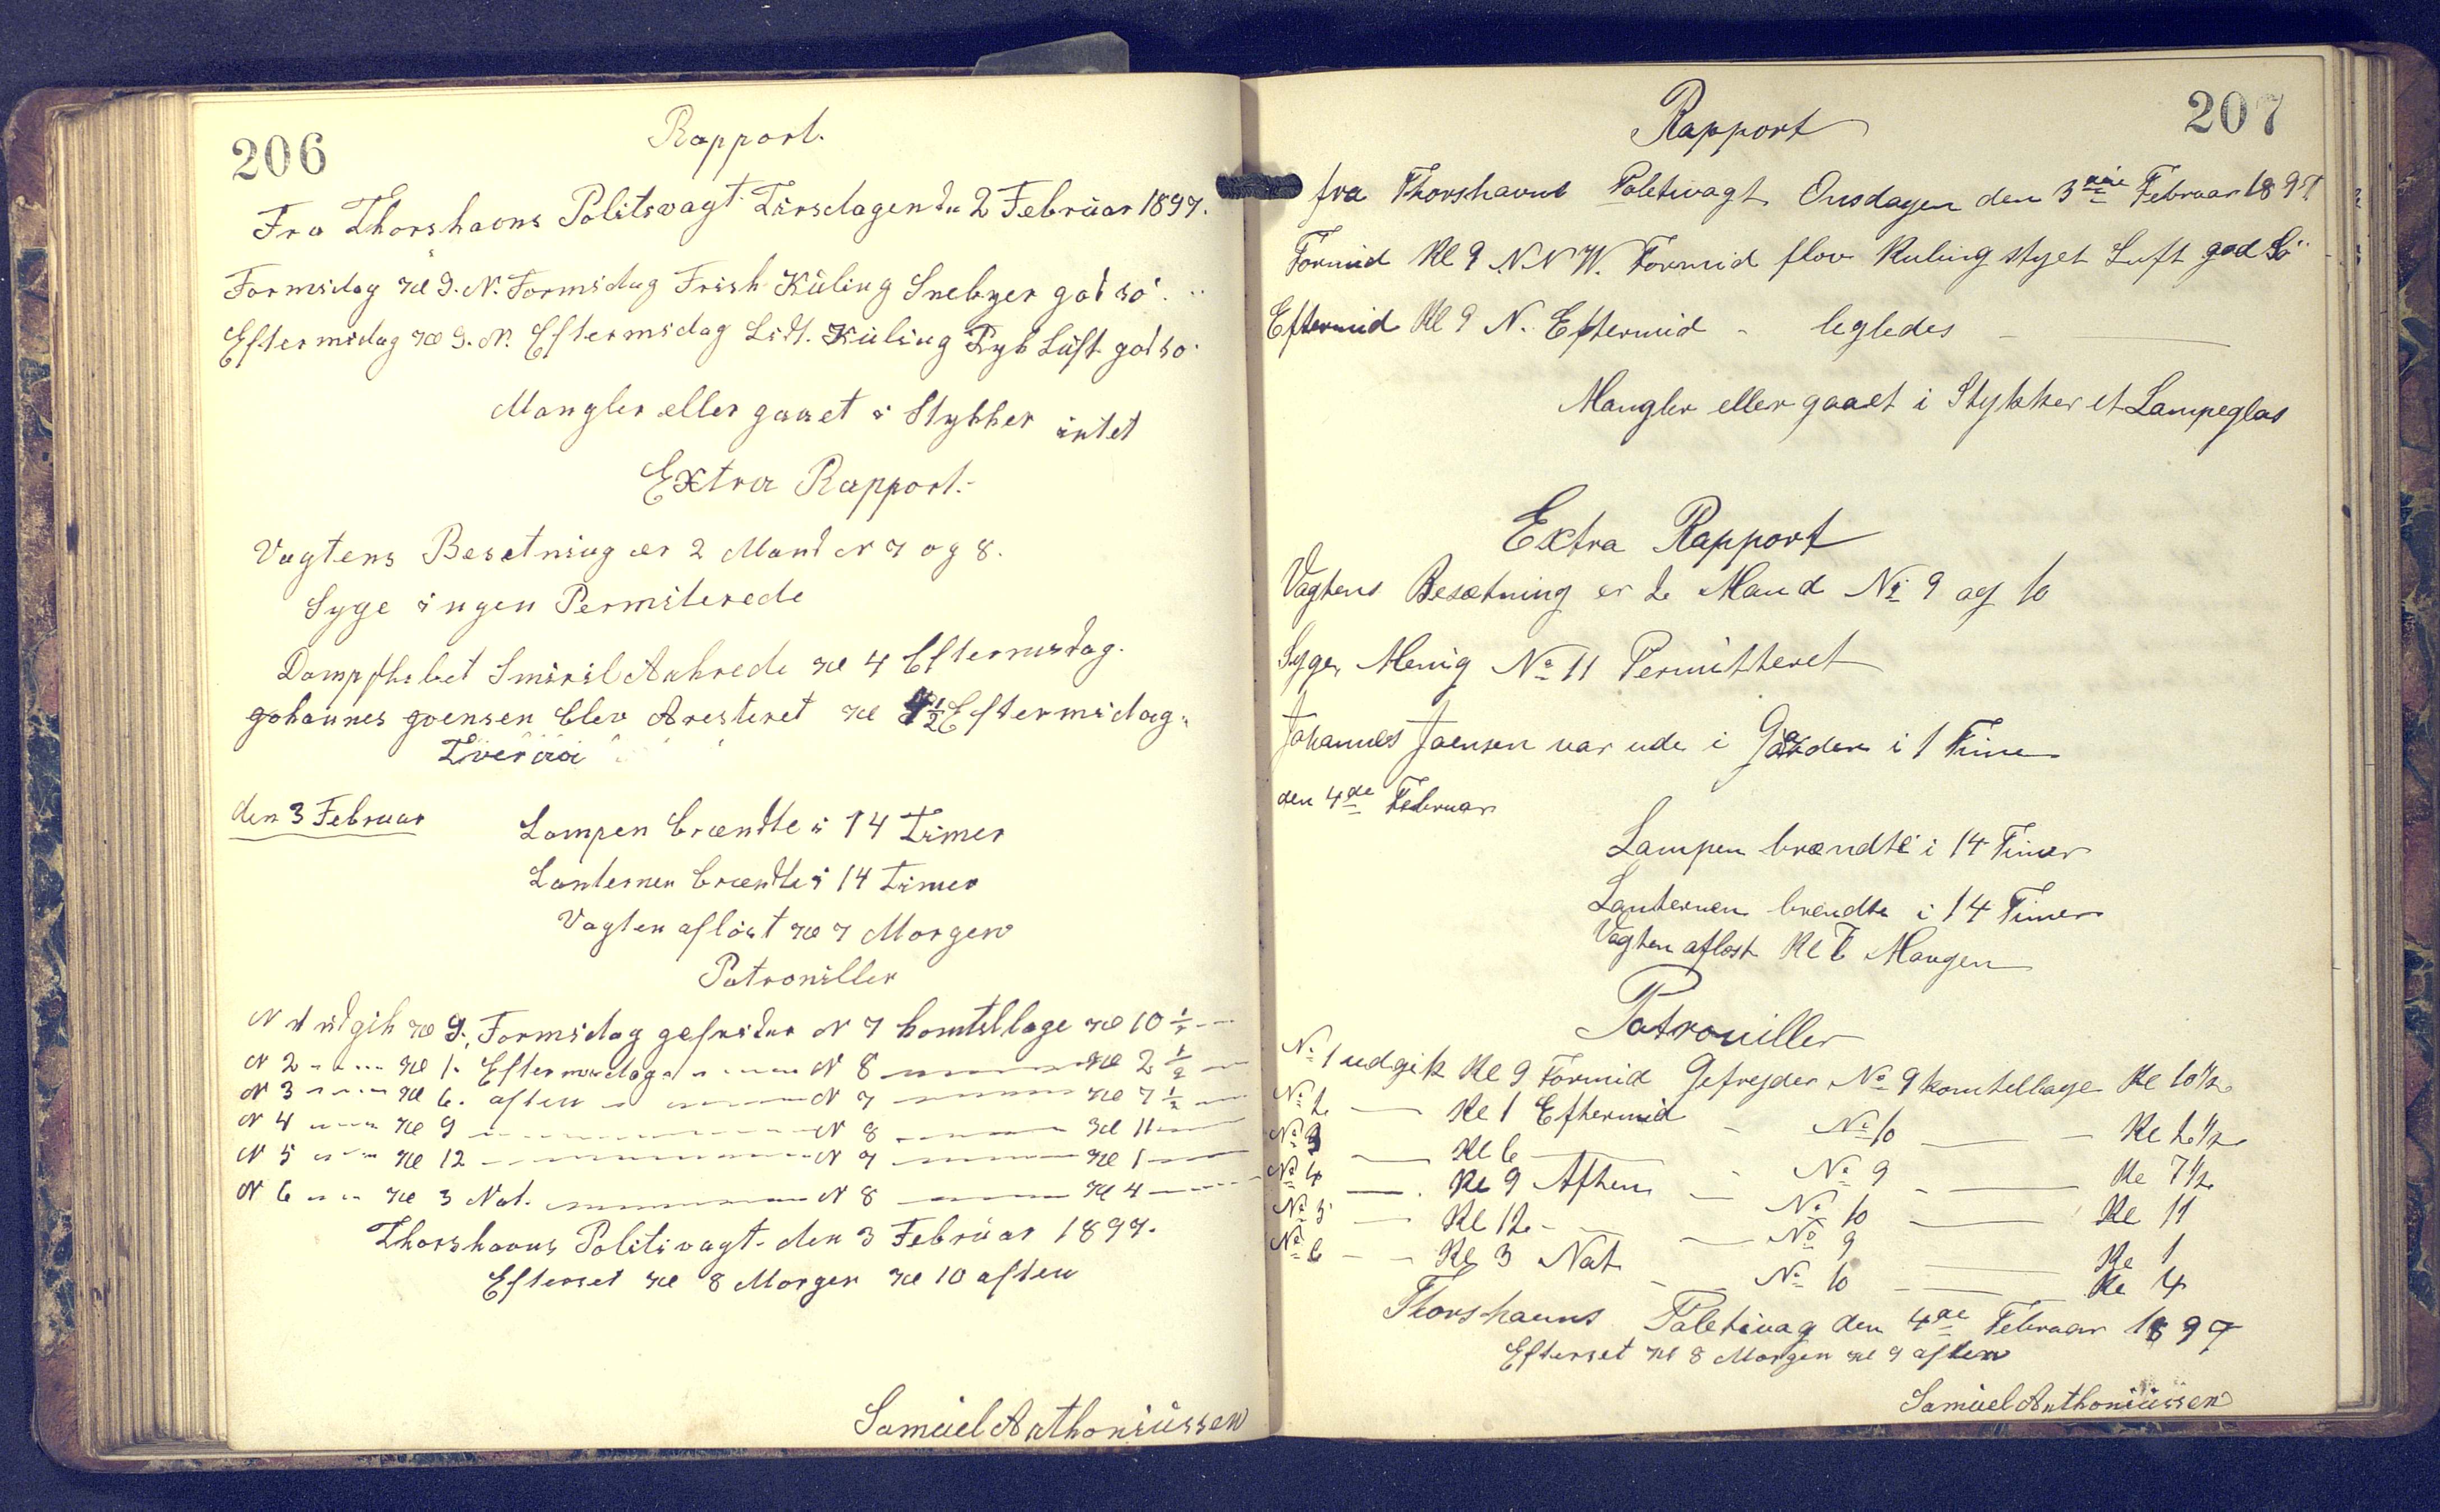 206
Rapport.
Fra Thorshavns Politivagt Tirsdagen dn 2 Februar 1897.
Formidag Kl 9. N. Formidag Frisk Kuling Snebyer god sø.
Eftermidag Kl 9. N. Eftermidag Lidt. Kuling Tyk Luft god sø.
Mangler eller gaaet i Stykker intet
Extra Rapport.
Vagtens Besetning er 2 Mand N 7 og 8.
Syge ingen Permiterede
Dampskibet Smiril Ankrede Kl 4 Eftermidag.
Johannes Joensen blev Aresteret Kl 4½ Eftermidag.
Tveraa
den 3 Februar
Lampen brændte i 14 Timer
Lanternen brændte i 14 Timer
Vagten afløst Kl 7 Morgen
Patrouiller
N 1 udgik Kl 9. Formidag gefreider N 7 komtilbage Kl 10 ½
N 2 " " Kl 1. Eftermidag " N 8 Kl 2 ½
N 3 " " Kl 6. aften " N 7 Kl 7 ½
N 4 " " Kl 9 N 8 Kl 11
N 5 " " Kl 12 N 7 Kl 1
N 6 " " Kl 3 Nat. N 8 Kl 4
Thorshavns Politivagt den 3 Februar 1897.
Efterset Kl 8 Morgen Kl 10 aften
Samuel Anthoniussen
207
Rapport
fra Thorshavns Poletivagt Onsdagen den 3die Februar 1897
Formid Kl 9 N.N.W. Formid flov Kuling skyet Luft god Sö
Eftermid Kl 9 N. Eftermid - legledes
Mangler eller gaaet i Stykker et Lampeglas
Extra Rapport
Vagtens Besætning er 2 Mand No 9 og 10
Syge, Menig No 11 Permitteret
Johannes Joensen var ude i Gaarden i 1 Time
den 4de Februar
Lampen brændte i 14 Timer
Lanternen brendte i 14 Timer
Vagten aflost Kl 7 Morgen
Patrouiller
No 1 udgik Kl 9 Formid Gefrejder No 9 komtelbage Kl 10½
No 2 — Kl 1 Eftermid - No 10 — Kl 2½
No 3 — Kl 6 — No 9 — Kl 7½
No 4 — Kl 9 Aften — No 10 — Kl 11
No 5 — Kl 12 - — No 9 — Kl 1
No 6 — Kl 3 Nat — No 10 — Kl 4
Thorshavns Poletivag den 4de Februar 1897
Efterset Kl 8 Morgen Kl 9 aften
Samuel Anthoniussen